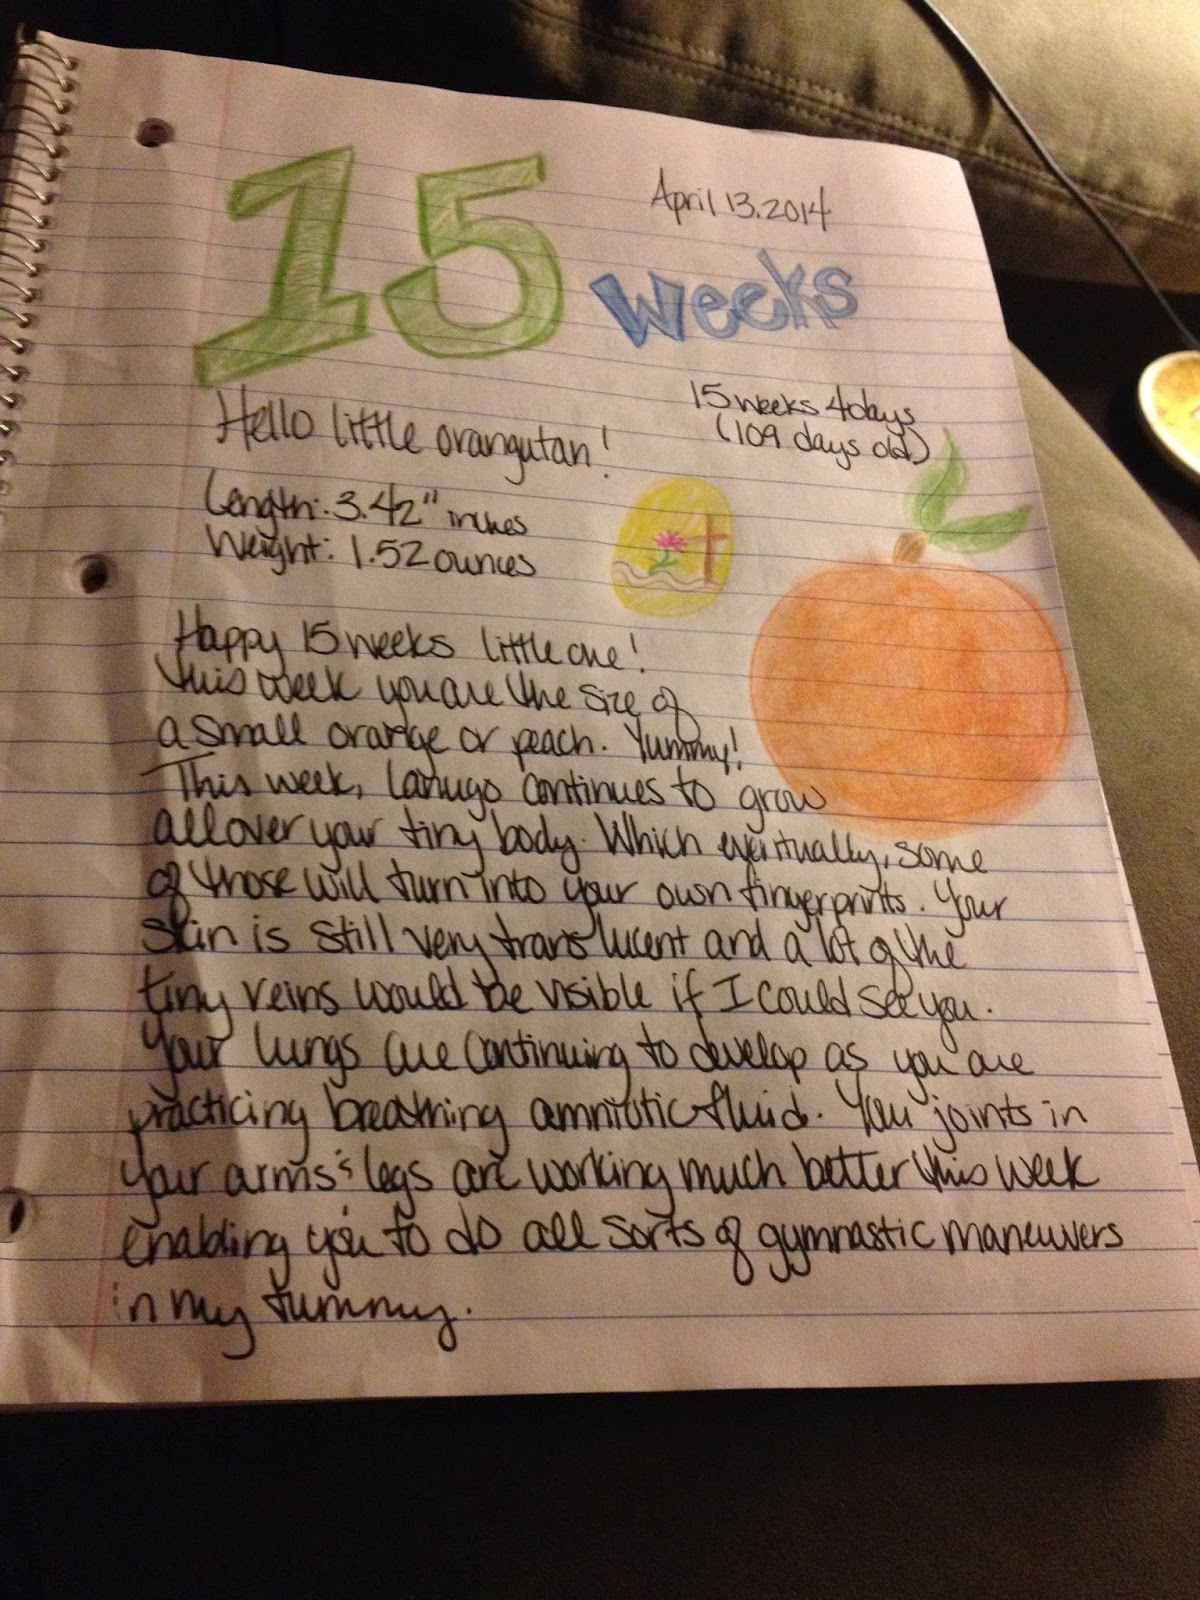 15 Weeks
April 13.2014
15 weeks 4days
(109 days old)
Hello little orangutan!
Length: 3.42" inches
Weight: 1.52 ounces
Happy 15 weeks little one!
This week you are the size of
a small orange or peach. Yummy!
This week, lanugo continues to grow
all over your tiny body. Which eventually, some
of those will turn into your own fingerprints. Your
skin is still very translucent and a lot of the
tiny veins would be visible if I could see you.
Your lungs are continuing to develop as you are
practicing breathing amniotic fluid. You joints in
your arms & legs are working much better this week
enabling you to do all sorts of gymnastic maneuvers
in my tummy.